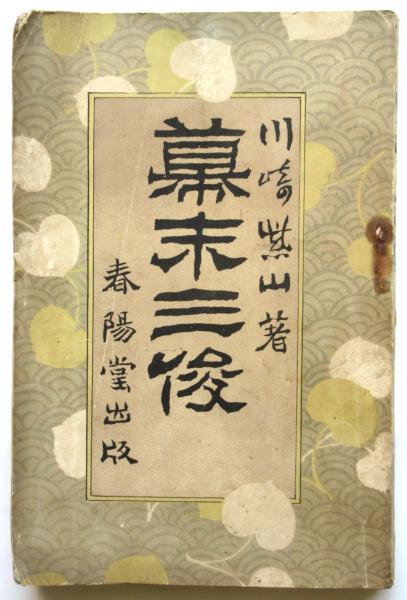 川崎紫山著
幕末三俊
春陽堂出版